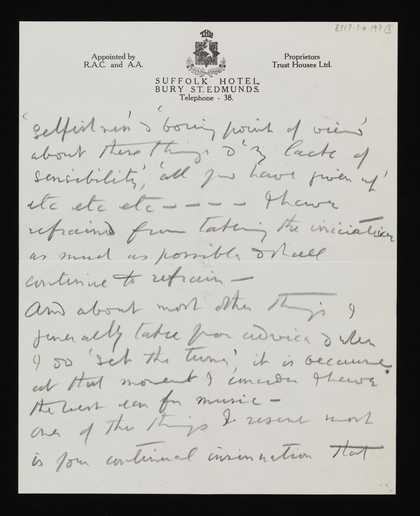 Appointed by
R.A.C. and A.A.
Proprietors
Trust Houses Ltd.
SUFFOLK HOTEL,
BURY ST. EDMUNDS.
Telephone - 38.
'selfishness' & 'boring point of view'
about these things & 'my lack of
sensibility', 'all you have given up'
etc etc etc - - - - I have
refrained from taking the initiative
as much as possible & shall
continue to refrain —
And about most other things I
generally take your advice & when
I do 'set the tune', it is because
at that moment I consider I have
the best ear for music —
One of the things I resent most
is your continual insinuation that